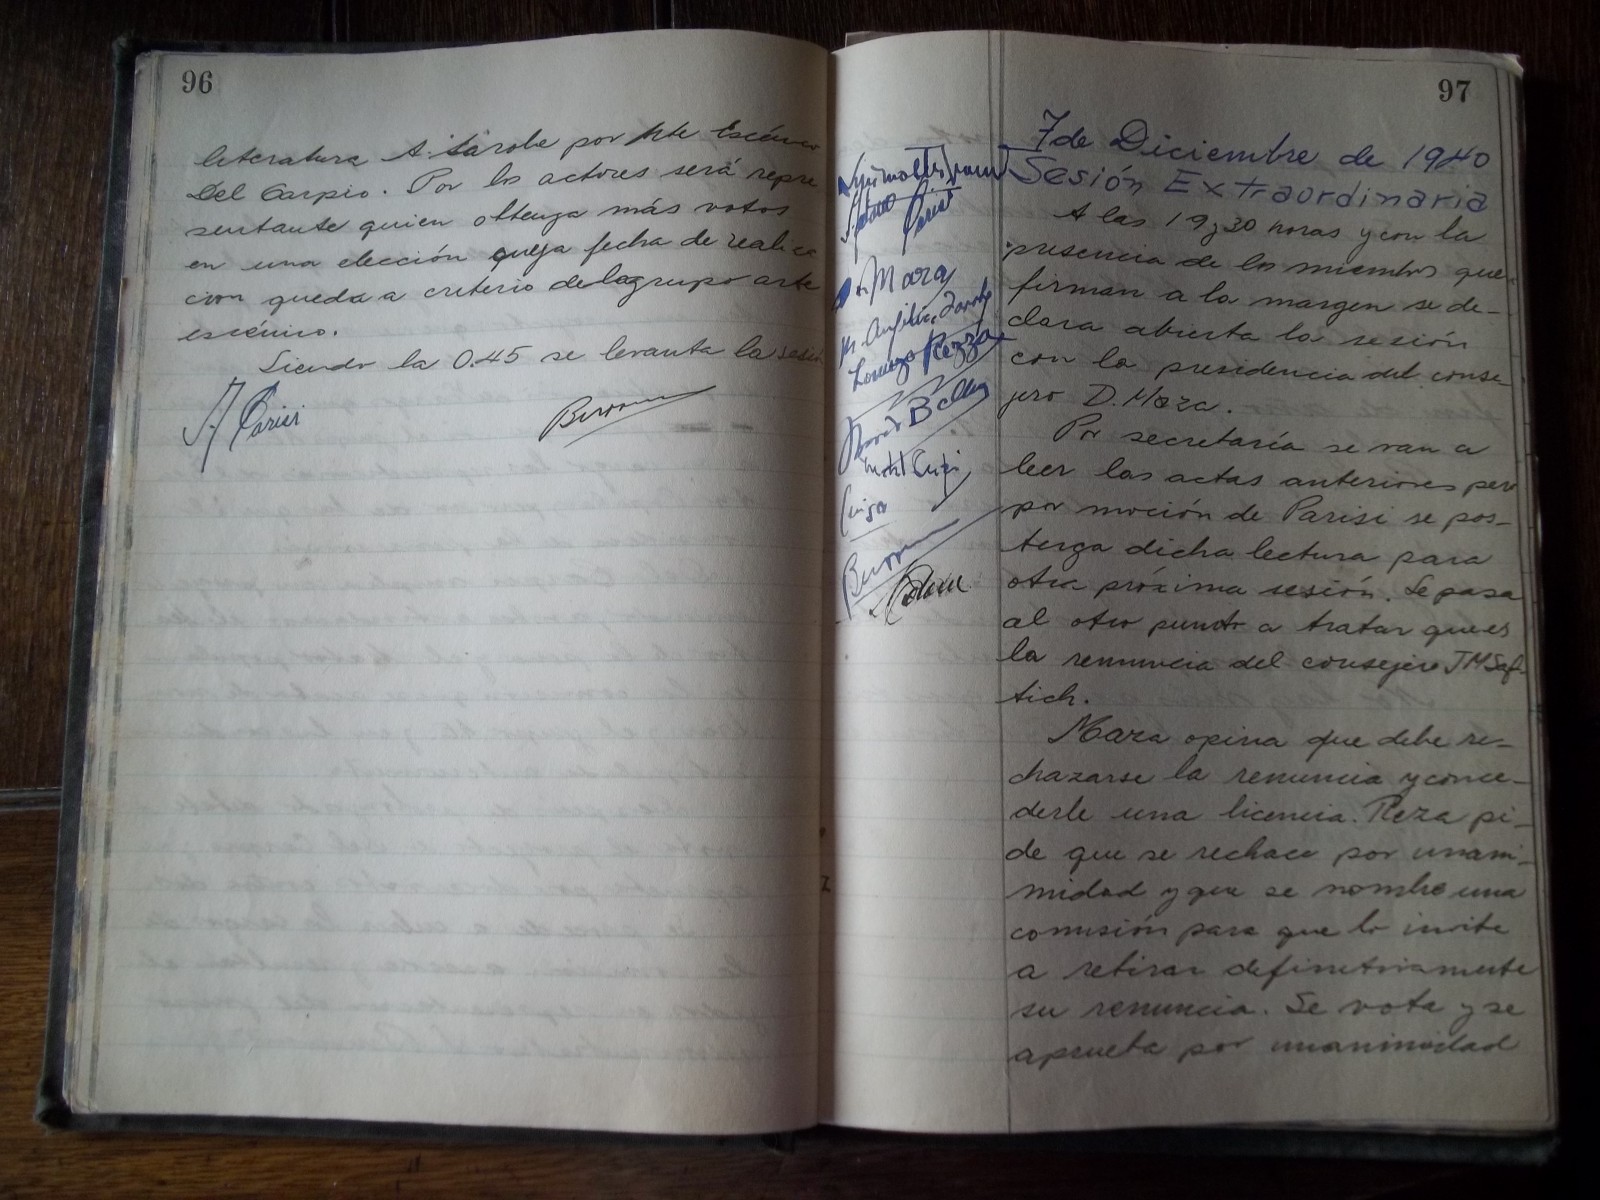 96
literatura A. Sarobe por Arte Escénico
Del Carpio. Por los actores será repre
sentante quien obtenga más votos
en una elección cuya fecha de realiza
cion queda a criterio del grupo arte
escénico.
Siendo la 0.45 se levanta la sesión
J. Parisi
97
7 de Diciembre de 1940
Sesión Extraordinaria
Parisi
D. Maza
M. Angélica
Lorenzo Rezza
A las 19 y 30 horas y con la
presencia de los miembros que
firman a la margen se de-
clara abierta la sesión
con la presidencia del conse-
jero D. Maza.
Por secretaría se van a
leer las actas anteriores pero
por moción de Parisi se pos-
terga dicha lectura para
otra próxima sesión. Se pasa
al otro punto a tratar que es
la renuncia del consejero JM Saf-
tich.
Maza opina que debe re-
chazarse la renuncia y conce-
derle una licencia. Reza pi-
de que se rechace por unani-
midad y que se nombre una
comisión para que lo invite
a retirar definitivamente
su renuncia. Se vota y se
aprueba por unanimidad